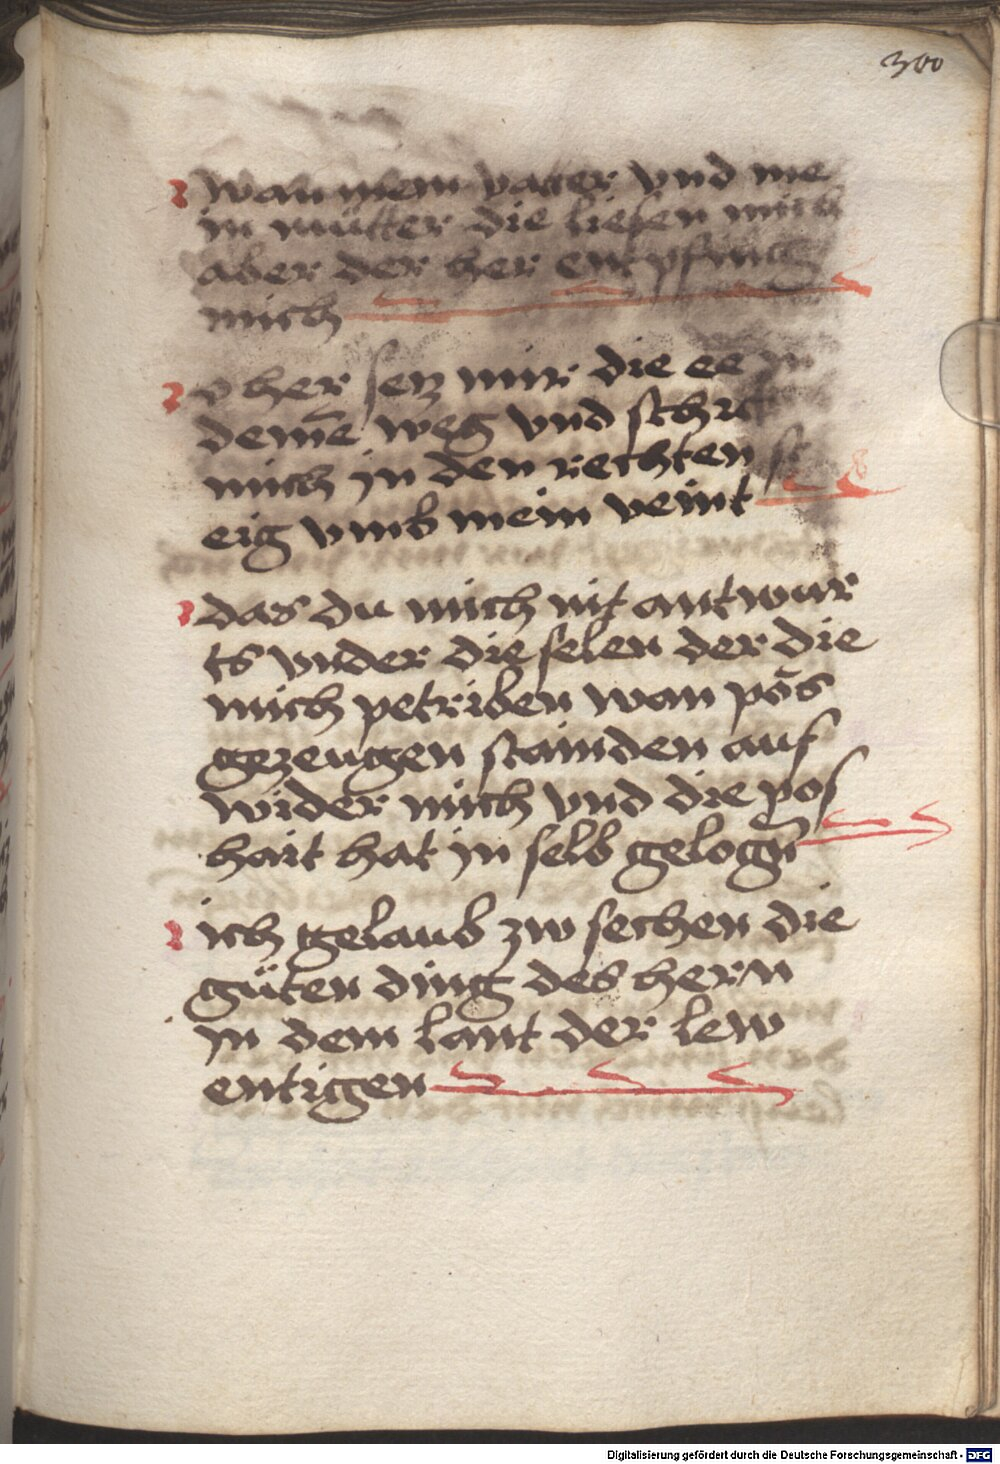 300
wan mein vatter vnd me
in mutter die liesen mich
aber der her entpfing
mich
o her secz mir die ee in
deinē weg vnd schri
mich in den rechten st
eig vmb mein veint
das du mich nit antwur
ts vnder die selen der die
mich petriben wan pos
gezeugen stainden auf
wider mich vnd die pos
hait hat in selb gelogn̄
ich gelaub zw sechen die
güten ding des hern
in dem lant der lew
entigen
Digitalisierung gefördert durch die Deutsche Forschungsgemeinschaft - DFG